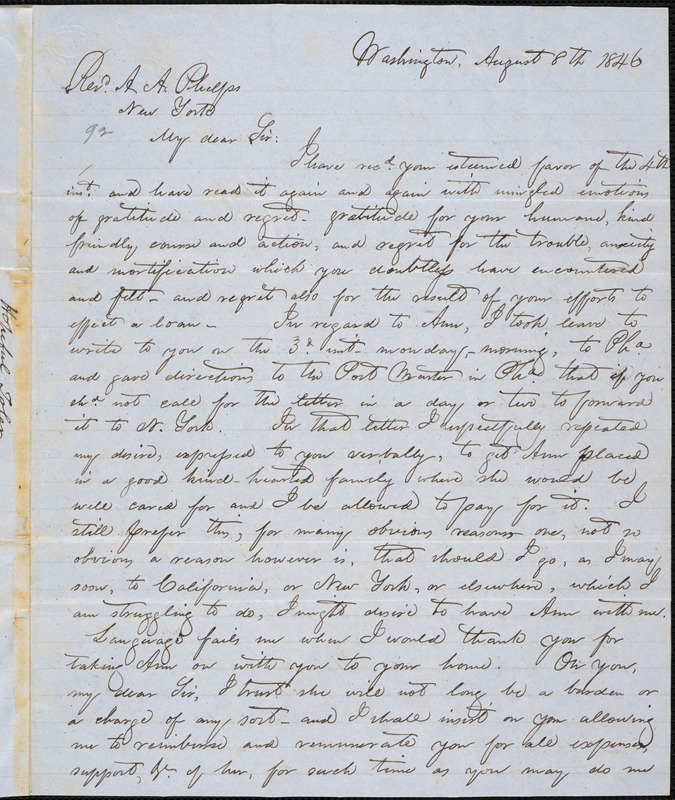 Washington, August 8th 1846
Revd. A. A. Phelps
New York
92
My dear Sir:
I have recd. your esteemed favor of the 4th
inst. and have read it again and again with mingled emotions
of gratitude and regret - gratitude for your humane, kind
friendly course and action, and regret for the trouble, anxiety
and mortification which you doubtless have encountered
and felt - and regret also for the result of your efforts to
effect a loan - In regard to Ann, I took leave to
write to you on the 3d. inst - monday - morning, to Pha.
and gave directions to the Post Master in Pha. that if you
shd. not call for the letter in a day or two to forward
it to N. York. In that letter I respectfully repeated
my desire, expressed to you verbally, to get Ann placed
in a good kind-hearted family where she would be
well cared for and I be allowed to pay for it. I
still prefer this, for many obvious reasons one, not so
obvious a reason however is, that should I go, as I may
soon, to California, or New York, or elsewhere, which I
am struggling to do, I might desire to have Ann with me.
Language fails me when I would thank you for
taking Ann on with you to your home. On you,
my dear Sir, I trust she will not long be a burden or
a charge of any sort - and I shall insist on you allowing
me to reimburse and remunerate you for all expenses,
support, &c. of her, for such time as you may do me